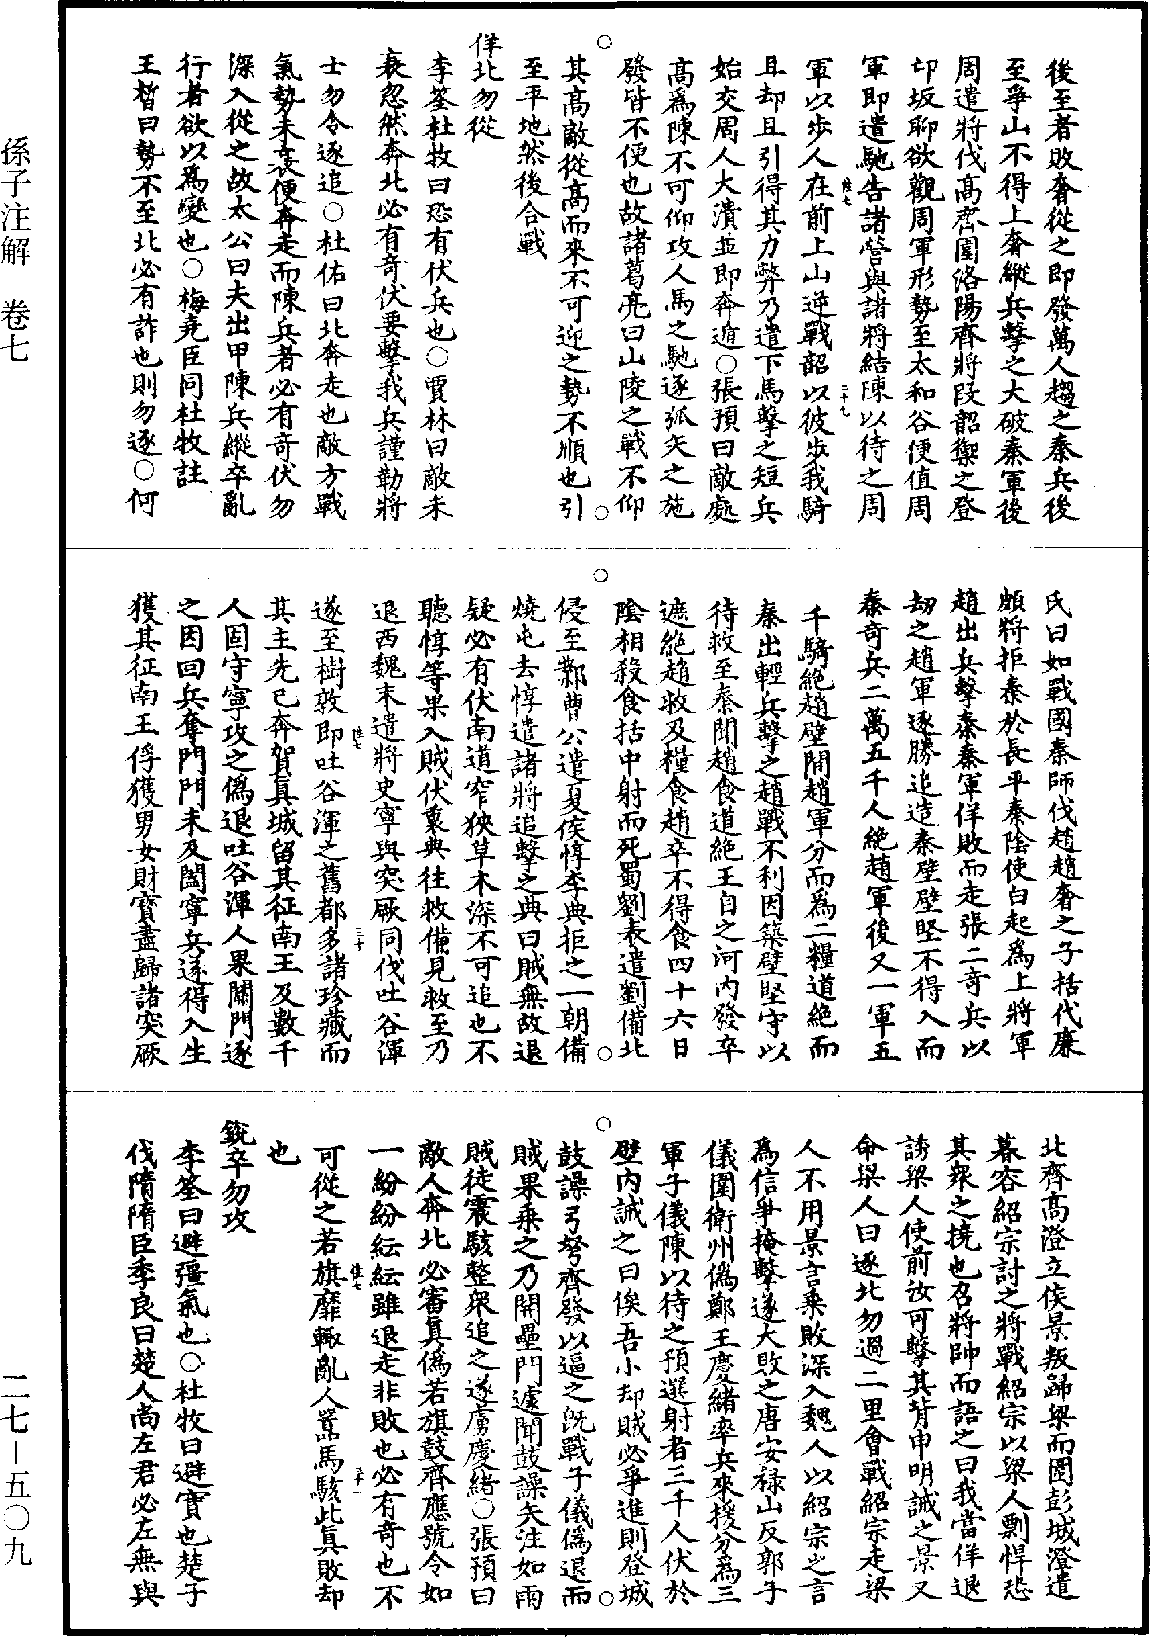 孫子注解　卷七
二七—五〇九
後至者敗奢從之即發萬人趨之秦兵後
至爭山不得上奢縱兵擊之大破秦軍後
周遣將伐高齊圍洛陽齊將段韶禦之登
邙坂聊欲觀周軍形勢至太和谷便值周
軍即遣馳告諸營與諸將結陳以待之周
軍以步人在前上山逆戰韶以彼步我騎
且却且引得其力弊乃遣下馬擊之短兵
始交周人大潰並即奔遁○張預曰敵處
高爲陳不可仰攻人馬之馳逐弧矢之施
發皆不便也故諸葛亮曰山陵之戰不仰
其高敵從高而來不可迎之勢不順也引
至平地然後合戰
佯北勿從
李筌杜牧曰恐有伏兵也○賈林曰敵未
衰忽然奔北必有奇伏要擊我兵謹勒將
士勿令逐追○杜佑曰北奔走也敵方戰
氣勢未衰便奔走而陳兵者必有奇伏勿
深入從之故太公曰夫出甲陳兵縱卒亂
行者欲以爲變也○梅堯臣同杜牧註
王晳曰勢不至北必有詐也則勿逐○何
氏曰如戰國秦師伐趙趙奢之子括代廉
頗將拒秦於長平秦陰使白起爲上將軍
趙出兵擊秦秦軍佯敗而走張二奇兵以
刼之趙軍逐勝追造秦壁壁堅不得入而
秦奇兵二萬五千人絶趙軍後又一軍五
千騎絶趙壁間趙軍分而爲二糧道絶而
秦出輕兵擊之趙戰不利因築壁堅守以
待救至秦聞趙食道絶王自之河内發卒
遮絶趙救及糧食趙卒不得食四十六日
陰相殺食括中射而死蜀劉表遣劉備北
侵至鄴曹公遣夏侯惇李典拒之一朝備
燒屯去惇遣諸將追擊之典曰賊無故退
疑必有伏南道窄狹草木深不可追也不
聽惇等果入賊伏裏典往救備見救至乃
退西魏末遣將史寧與突厥同伐吐谷渾
遂至樹敦即吐谷渾之舊都多諸珍藏而
其主先已奔賀真城留其征南王及數千
人固守寧攻之僞退吐谷渾人果開門逐
之因回兵奪門門未及闔寧兵遂得入生
獲其征南王俘獲男女財寶盡歸諸突厥
北齊高澄立侯景叛歸梁而圍彭城澄遣
慕容紹宗討之將戰紹宗以梁人剽悍恐
其衆之撓也召將帥而語之曰我當佯退
誘梁人使前汝可擊其背申明誡之景又
命梁人曰逐北勿過二里會戰紹宗走梁
人不用景言乘敗深入魏人以紹宗之言
爲信爭掩擊遂大敗之唐安祿山反郭子
儀圍衛州僞鄭王慶緒率兵來援分爲三
軍子儀陳以待之預選射者三千人伏於
壁内誡之曰俟吾小却賊必爭進則登城
鼓譟弓弩齊發以逼之旣戰子儀僞退而
賊果乘之乃開壘門遽聞鼓譟矢注如雨
賊徒震駭整衆追之遂虜慶緒○張預曰
敵人奔北必審真僞若旗鼓齊應號令如
一紛紛紜紜雖退走非敗也必有奇也不
可從之若旗靡轍亂人囂馬駭此真敗却
也
銳卒勿攻
李筌曰避彊氣也○杜牧曰避實也楚子
伐隋隋臣季良曰楚人尚左君必左無與